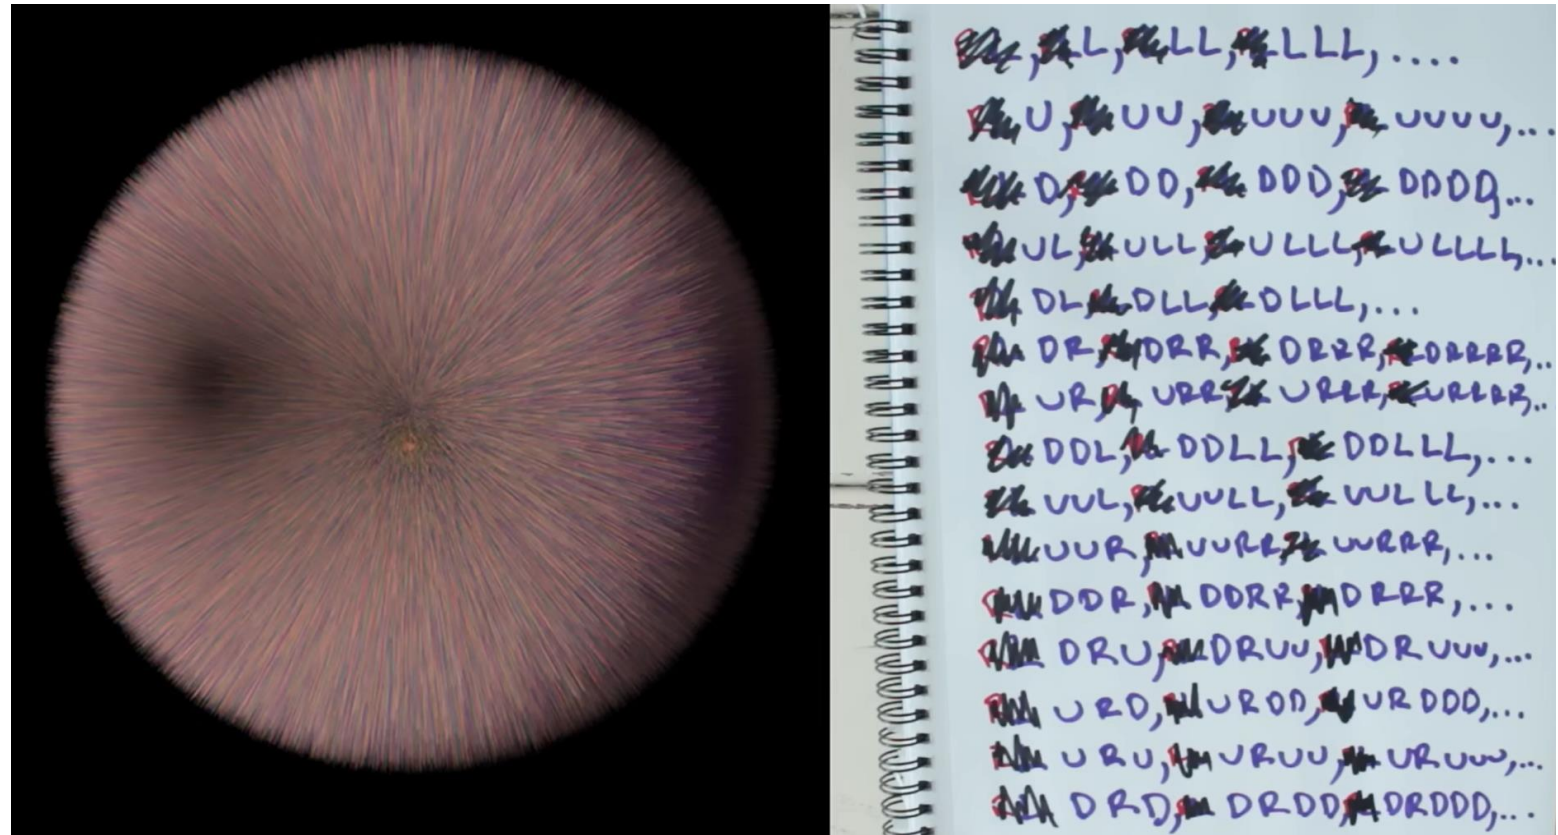 L, LL, LLL, ....
U, UU, UUU, UUUU, ...
D, DD, DDD, DDDD, ...
UL, ULL, ULLL, ULLLL, ...
DL, DLL, DLLL, ...
DR, DRR, DRRR, DRRRR, ..
UR, URR, URRR, URRRR, ..
DDL, DDLL, DDLLL, ...
UUL, UULL, UULLL, ...
UUR, UURR, UURRR, ...
DDR, DDRR, DRRR, ...
DRU, DRUU, DRUUU, ...
URD, URDD, URDDD, ...
URU, URUU, URUUU, ...
DRD, DRDD, DRDDD, ...